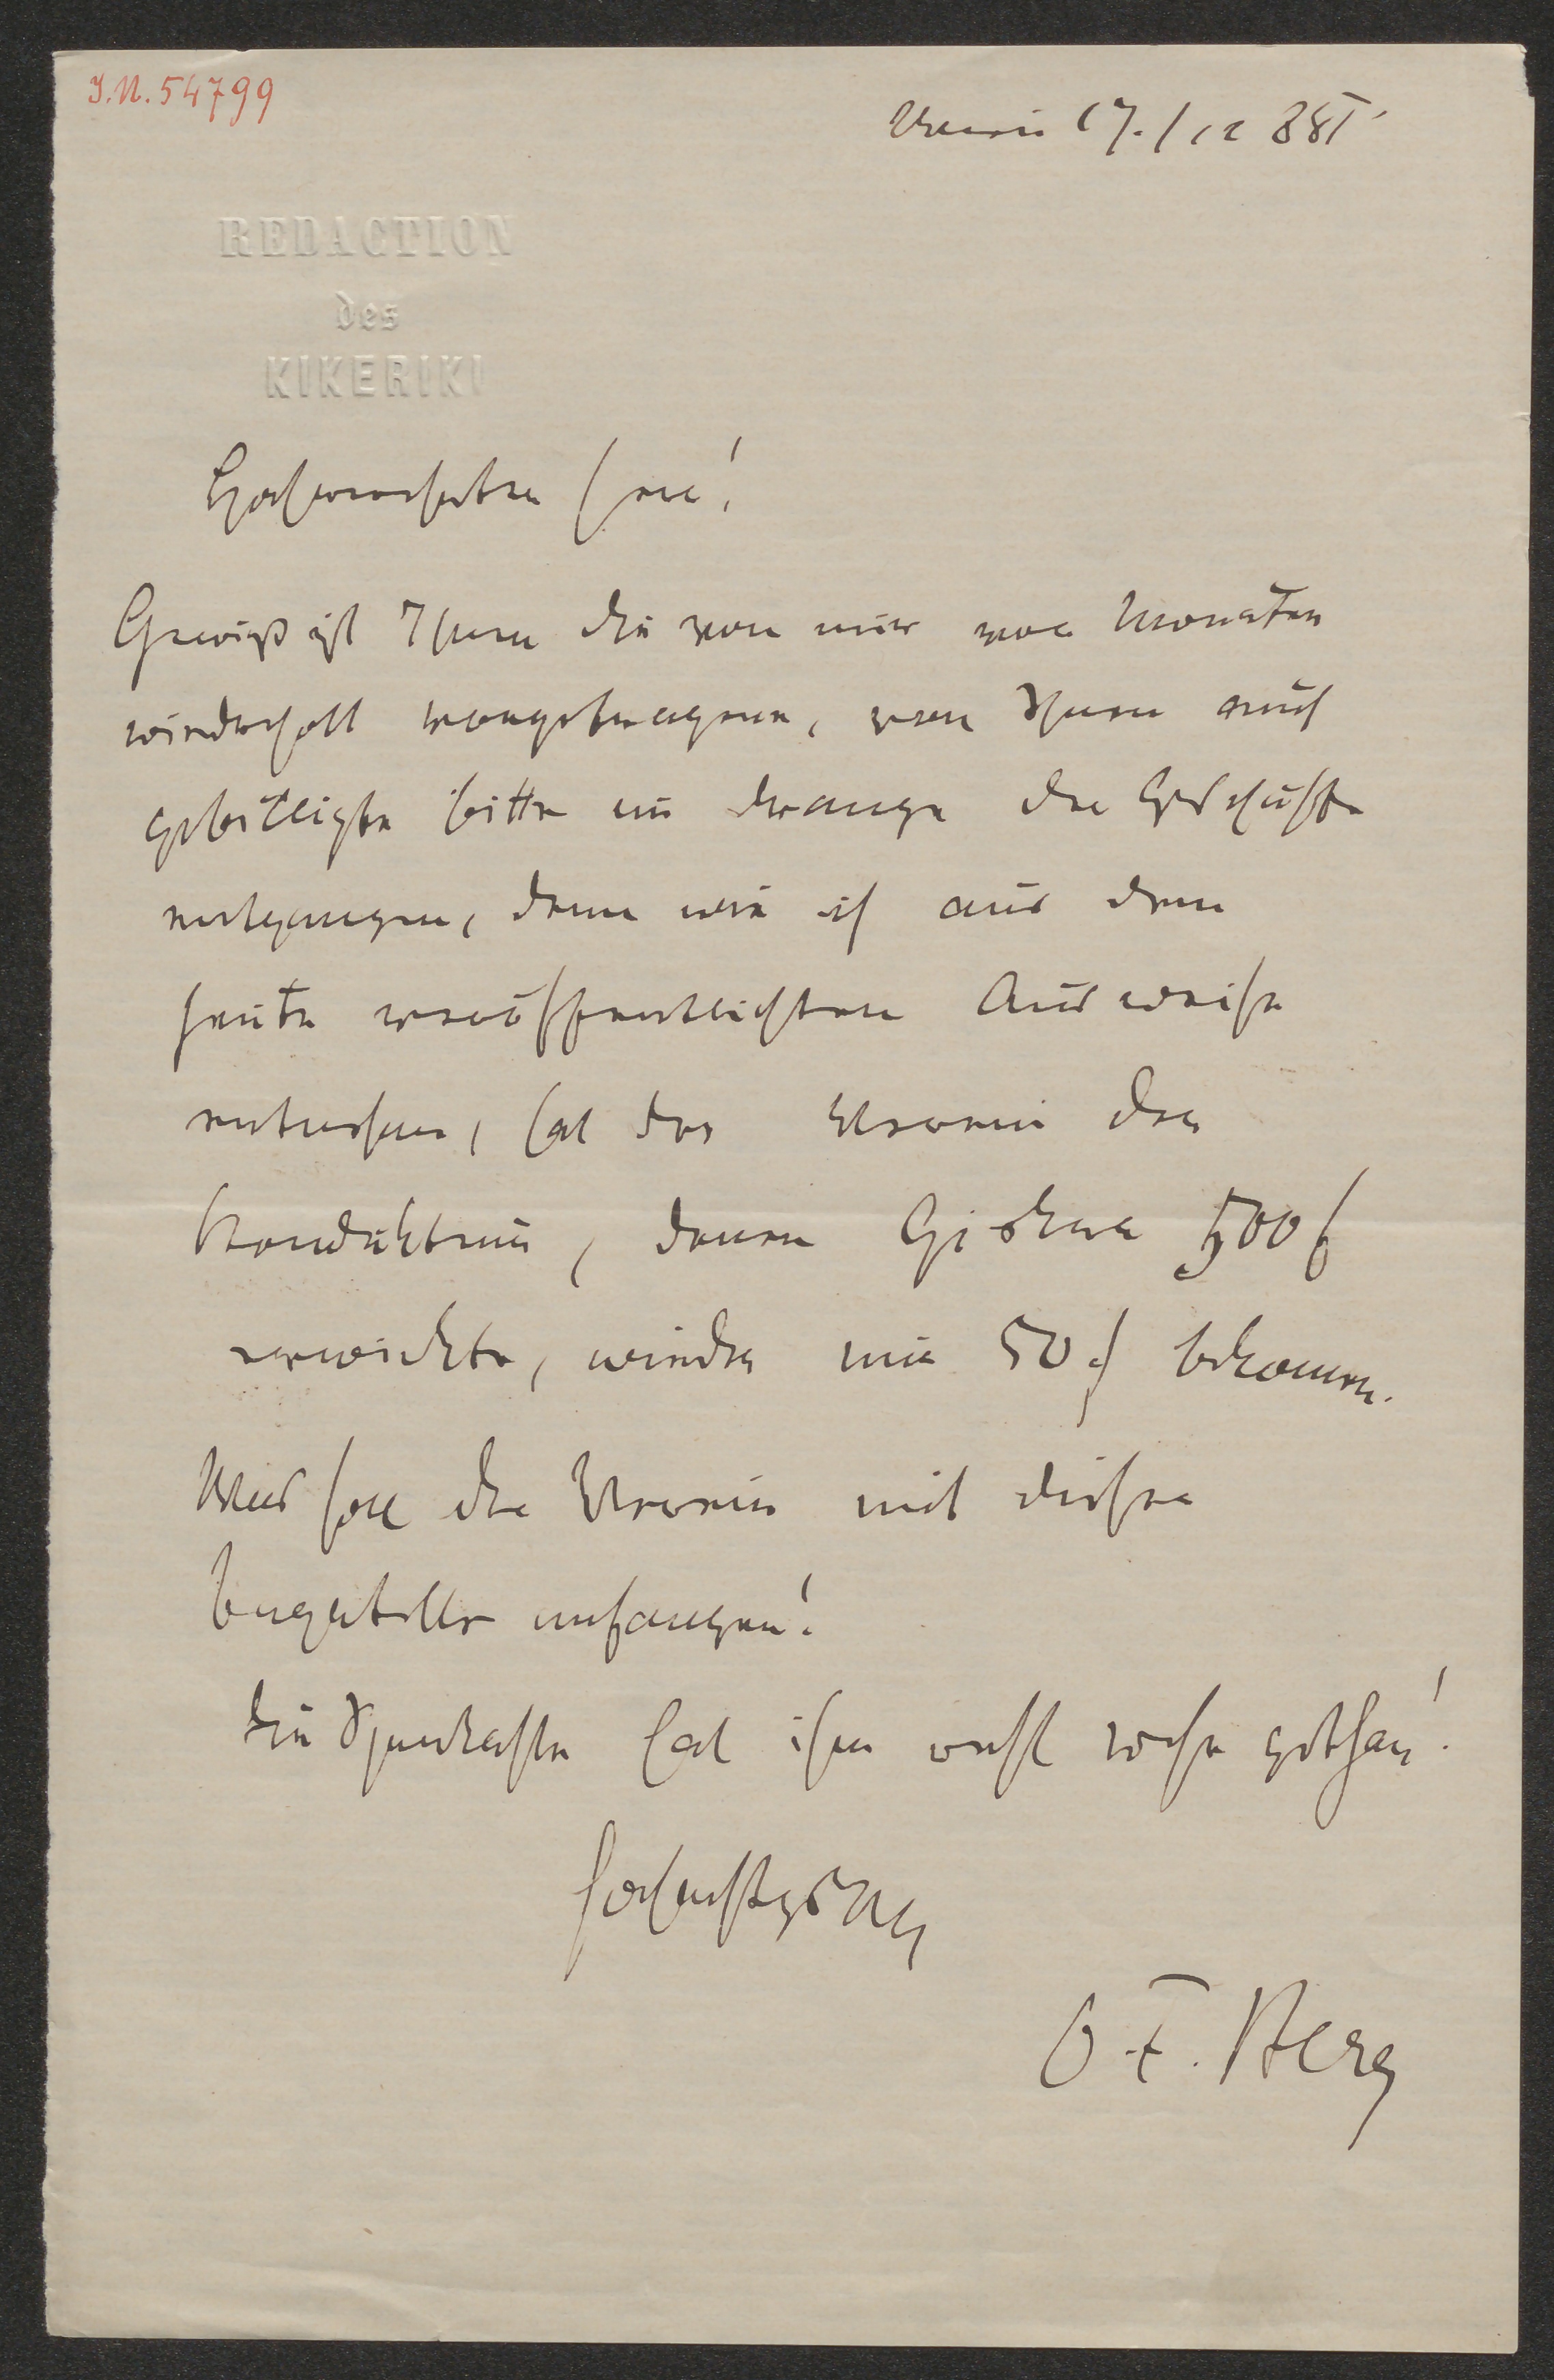 I.N. 54799
Wien 17./12 881
REDACTION
des
KIKERIKI
Hochverehrter Herr!
Gewiß ist Ihnen die von mir vor Monaten
wiederholt vorgetragene, von Ihnen auch
gebilligte Bitte im Drange der Geschäfte
entgangen, denn wie ich aus dem
heute veröffentlichten Ausweise
entnehme, hat der Verein der
Kondukteure, denen Giskra 500 f
erwirkte, wieder nur 50 f bekommen.
Was soll der Verein mit dieser
Bagatelle anfangen!
Die Sparkasse hat ihm wohl wehe gethan!
Hochachtungsvoll
O. F. Berg